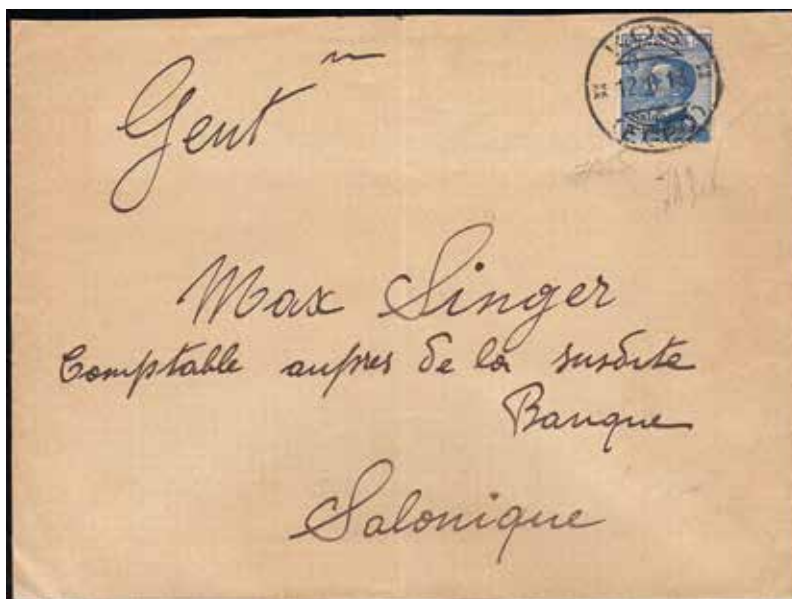 Gent m
Max Singer
Comptable aupres de la susdite
Banque
Salonique